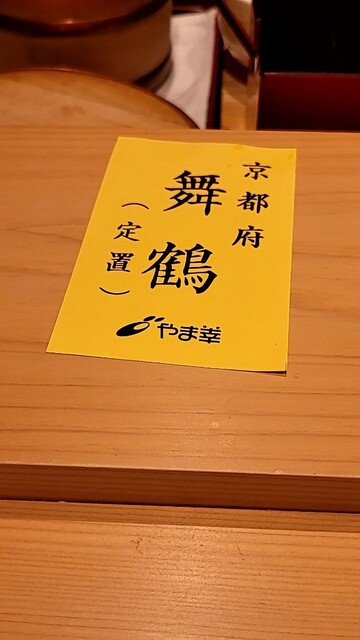 京都府
舞鶴
(定置)
やま幸